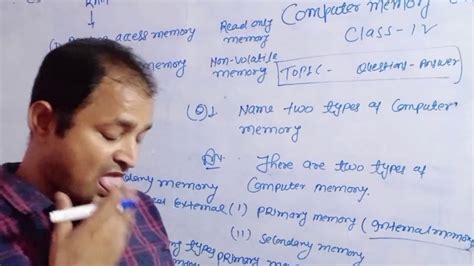 RAM
Computer memory
access memory
Read only
memory
Class-IV
memory
Non-volatile
memory
TOPIC- Question-Answer
Q1 Name two types of Computer
memory
An. There are two types of
Computer memory.
memory
External (I) Primary memory (Internal memory
(II) Secondary memory
types Primary